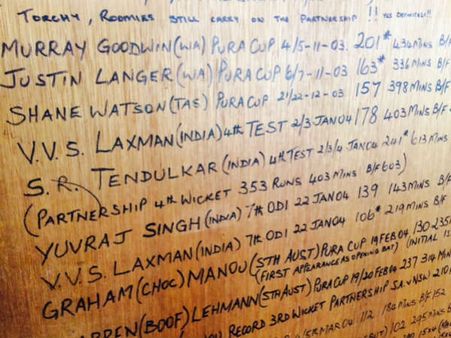 TORCHY, ROOMIES STILL CARRY ON THE PARTNERSHIP !!
MURRAY GOODWIN (WA) PURA CUP 4/5-11-03. 201* 434 MINS B/F
JUSTIN LANGER (WA) PURA CUP 6/7-11-03 163* 336 MINS B/F
SHANE WATSON (TAS) PURA CUP 21/22-12-03 157 398 MINS B/F
V.V.S. LAXMAN (INDIA) 4th TEST 2/3 JAN 04 178 403 MINS B/F
S.R. TENDULKAR (INDIA) 4th TEST 2/3/4 JAN 04 241* 613 MINS
(PARTNERSHIP 4th WICKET 353 RUNS 403 MINS B/F 603)
YUVRAJ SINGH (INDIA) 7th ODI 22 JAN 04 139 143 MINS B/F
V.V.S. LAXMAN (INDIA) 7th ODI 22 JAN 04 106* 219 MINS B/F
GRAHAM (CHOC) MANOU (STH AUST) PURA CUP 19 FEB 04 130 235
(FIRST APPEARANCE AS OPENING BAT) (INITIAL
(BOOF) LEHMANN (STH AUST) PURA CUP 19/20 FEB 04 237 314 MIN
RECORD 3RD WICKET PARTNERSHIP SA v NSW
MAR 04 112 180 MINS B/F 152
102 295 MINS